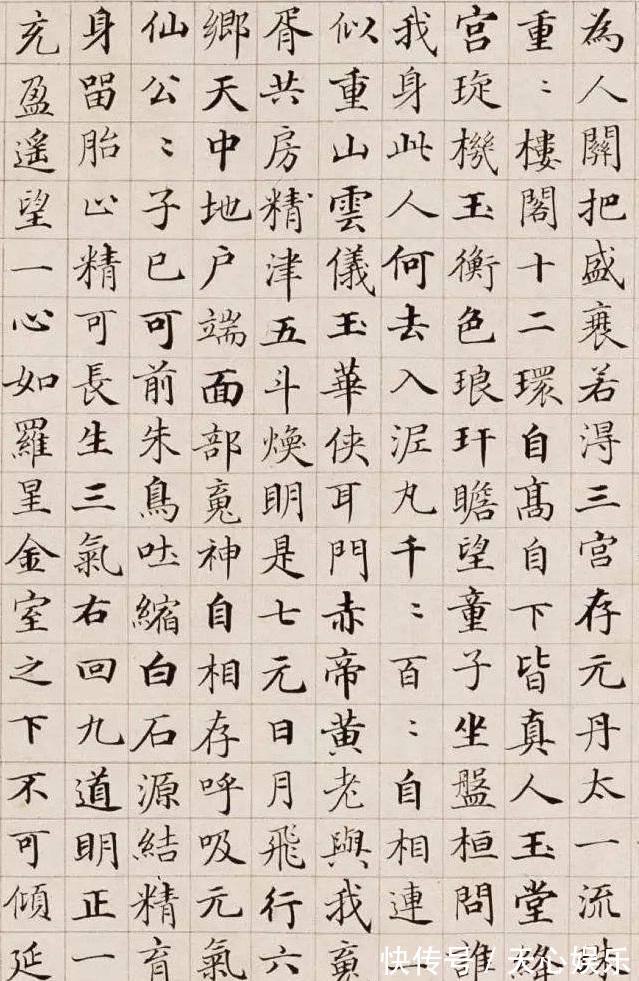 為人關把盛衰若得三宮存元丹太一流
重〻樓閣十二環自髙自下皆真人玉堂絳
宮琁機玉衡色琅玕瞻望童子坐盤桓問誰
我身此人何去入泥丸千〻百〻自相連
似重山雲儀玉華俠耳門赤帝黃老與我䰟
胥共房精津五斗煥明是七元日月飛行六
鄉天中地户端面部䰟神自相存呼吸元氣
仙公〻子已可前朱鳥吐縮白石源結精育
身留胎止精可長生三氣右回九道明正一
充盈遥望一心如羅星金室之下不可傾延
快传号 / 天心娱乐